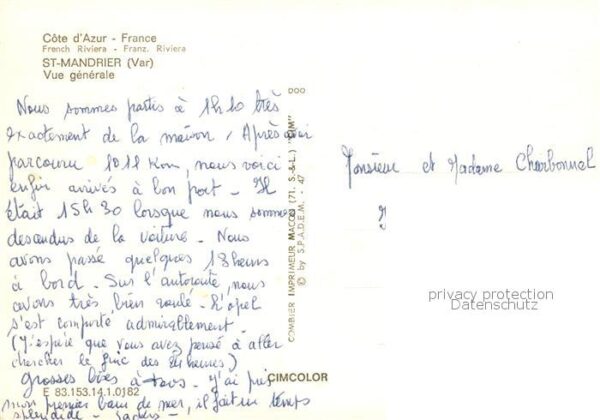 Côte d'Azur - France
French Riviera - Franz. Riviera
ST-MANDRIER (Var)
Vue générale
Nous sommes partis à 1h10 très
exactement de la maison. Après avoir
parcouru 1011 Km, nous voici
enfin arrivés à bon port - Il
était 15h30 lorsque nous sommes
descendus de la voiture - Nous
avons passé quelques 13 heures
à bord - Sur l'autoroute, nous
avons très bien roulé - L'opel
s'est comporté admirablement -
(J'espère que vous avez pensé à aller
chercher le fric des 24 heures)
Grosses bises à tous - J'ai pris
mon premier bain de mer, il fait un temps
splendide -
E 83.153.14.1.0182
CIMCOLOR
COMBIER IMPRIMEUR MACON (71. S.-&-L.) "CIM"
© by S.P.A.D.E.M. - 47
Monsieur et Madame Charbonnel
privacy protection
Datenschutz